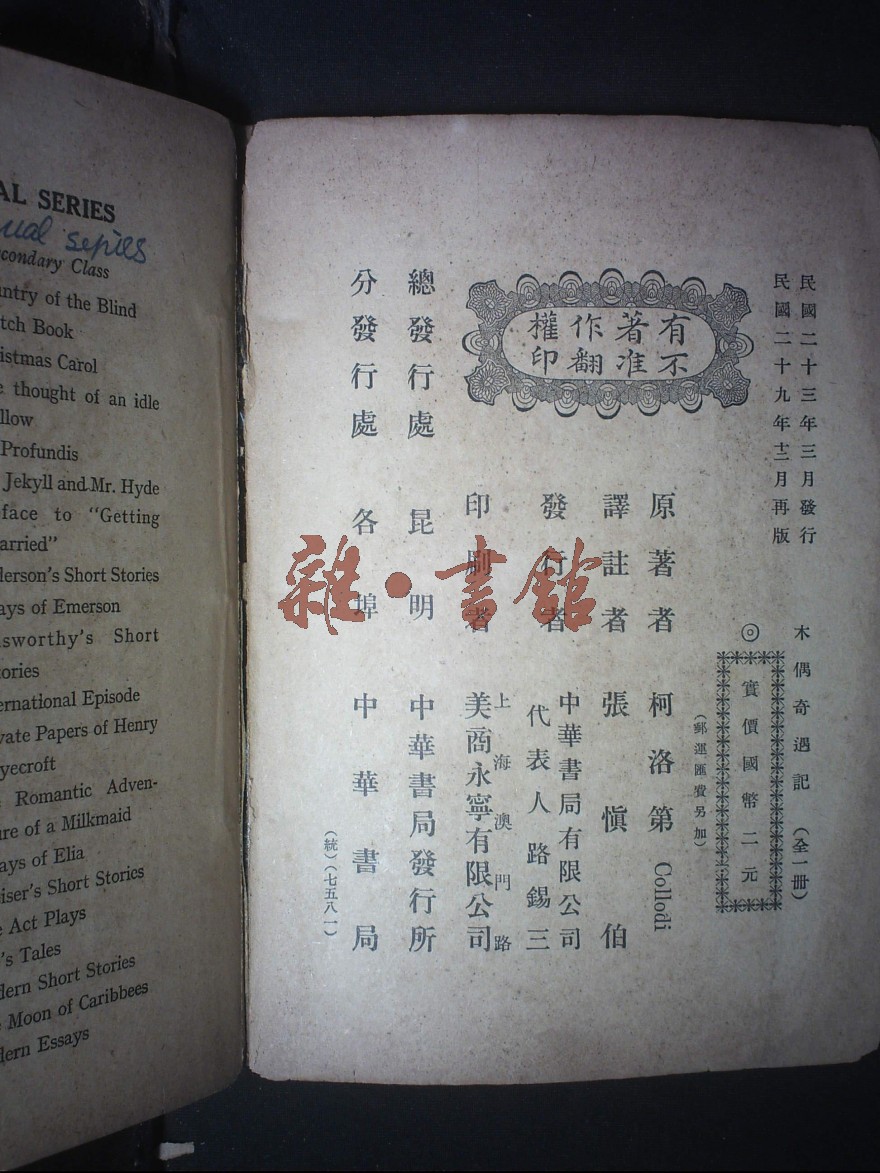 AL SERIES
ual series
condary Class
ntry of the Blind
tch Book
istmas Carol
e thought of an idle
llow
Profundis
Jekyll and Mr. Hyde
face to "Getting
arried"
derson's Short Stories
ays of Emerson
lsworthy's Short
tories
ernational Episode
vate Papers of Henry
yecroft
Romantic Adven-
ure of a Milkmaid
ays of Elia
iser's Short Stories
e Act Plays
's Tales
dern Short Stories
Moon of Caribbees
dern Essays
民國二十三年三月發行
民國二十九年十二月再版
木偶奇遇記（全一冊）
◎
實價國幣二元
（郵運匯費另加）
有著作權
不准翻印
原著者 柯洛第 Collodi
譯註者 張愼伯
發行者 中華書局有限公司
代表人路錫三
印刷者 上海澳門路
美商永寧有限公司
總發行處 昆明 中華書局發行所
分發行處 各埠 中華書局
（統）（七五八一）
雜·書館